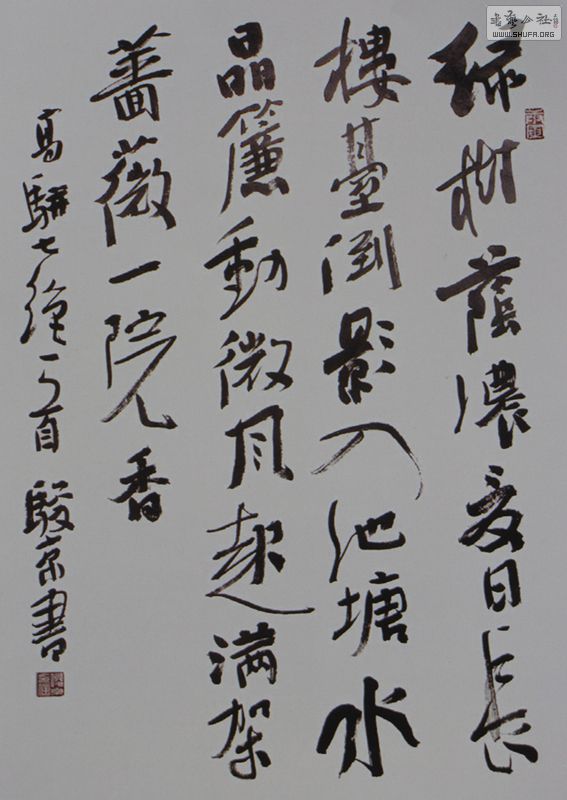 绿树荫濃夏日长
樓臺倒影入池塘水
晶簾動微风起满架
薔薇一院香
高駢七絶一首 駿京書
書法公社
WWW.SHUFA.ORG